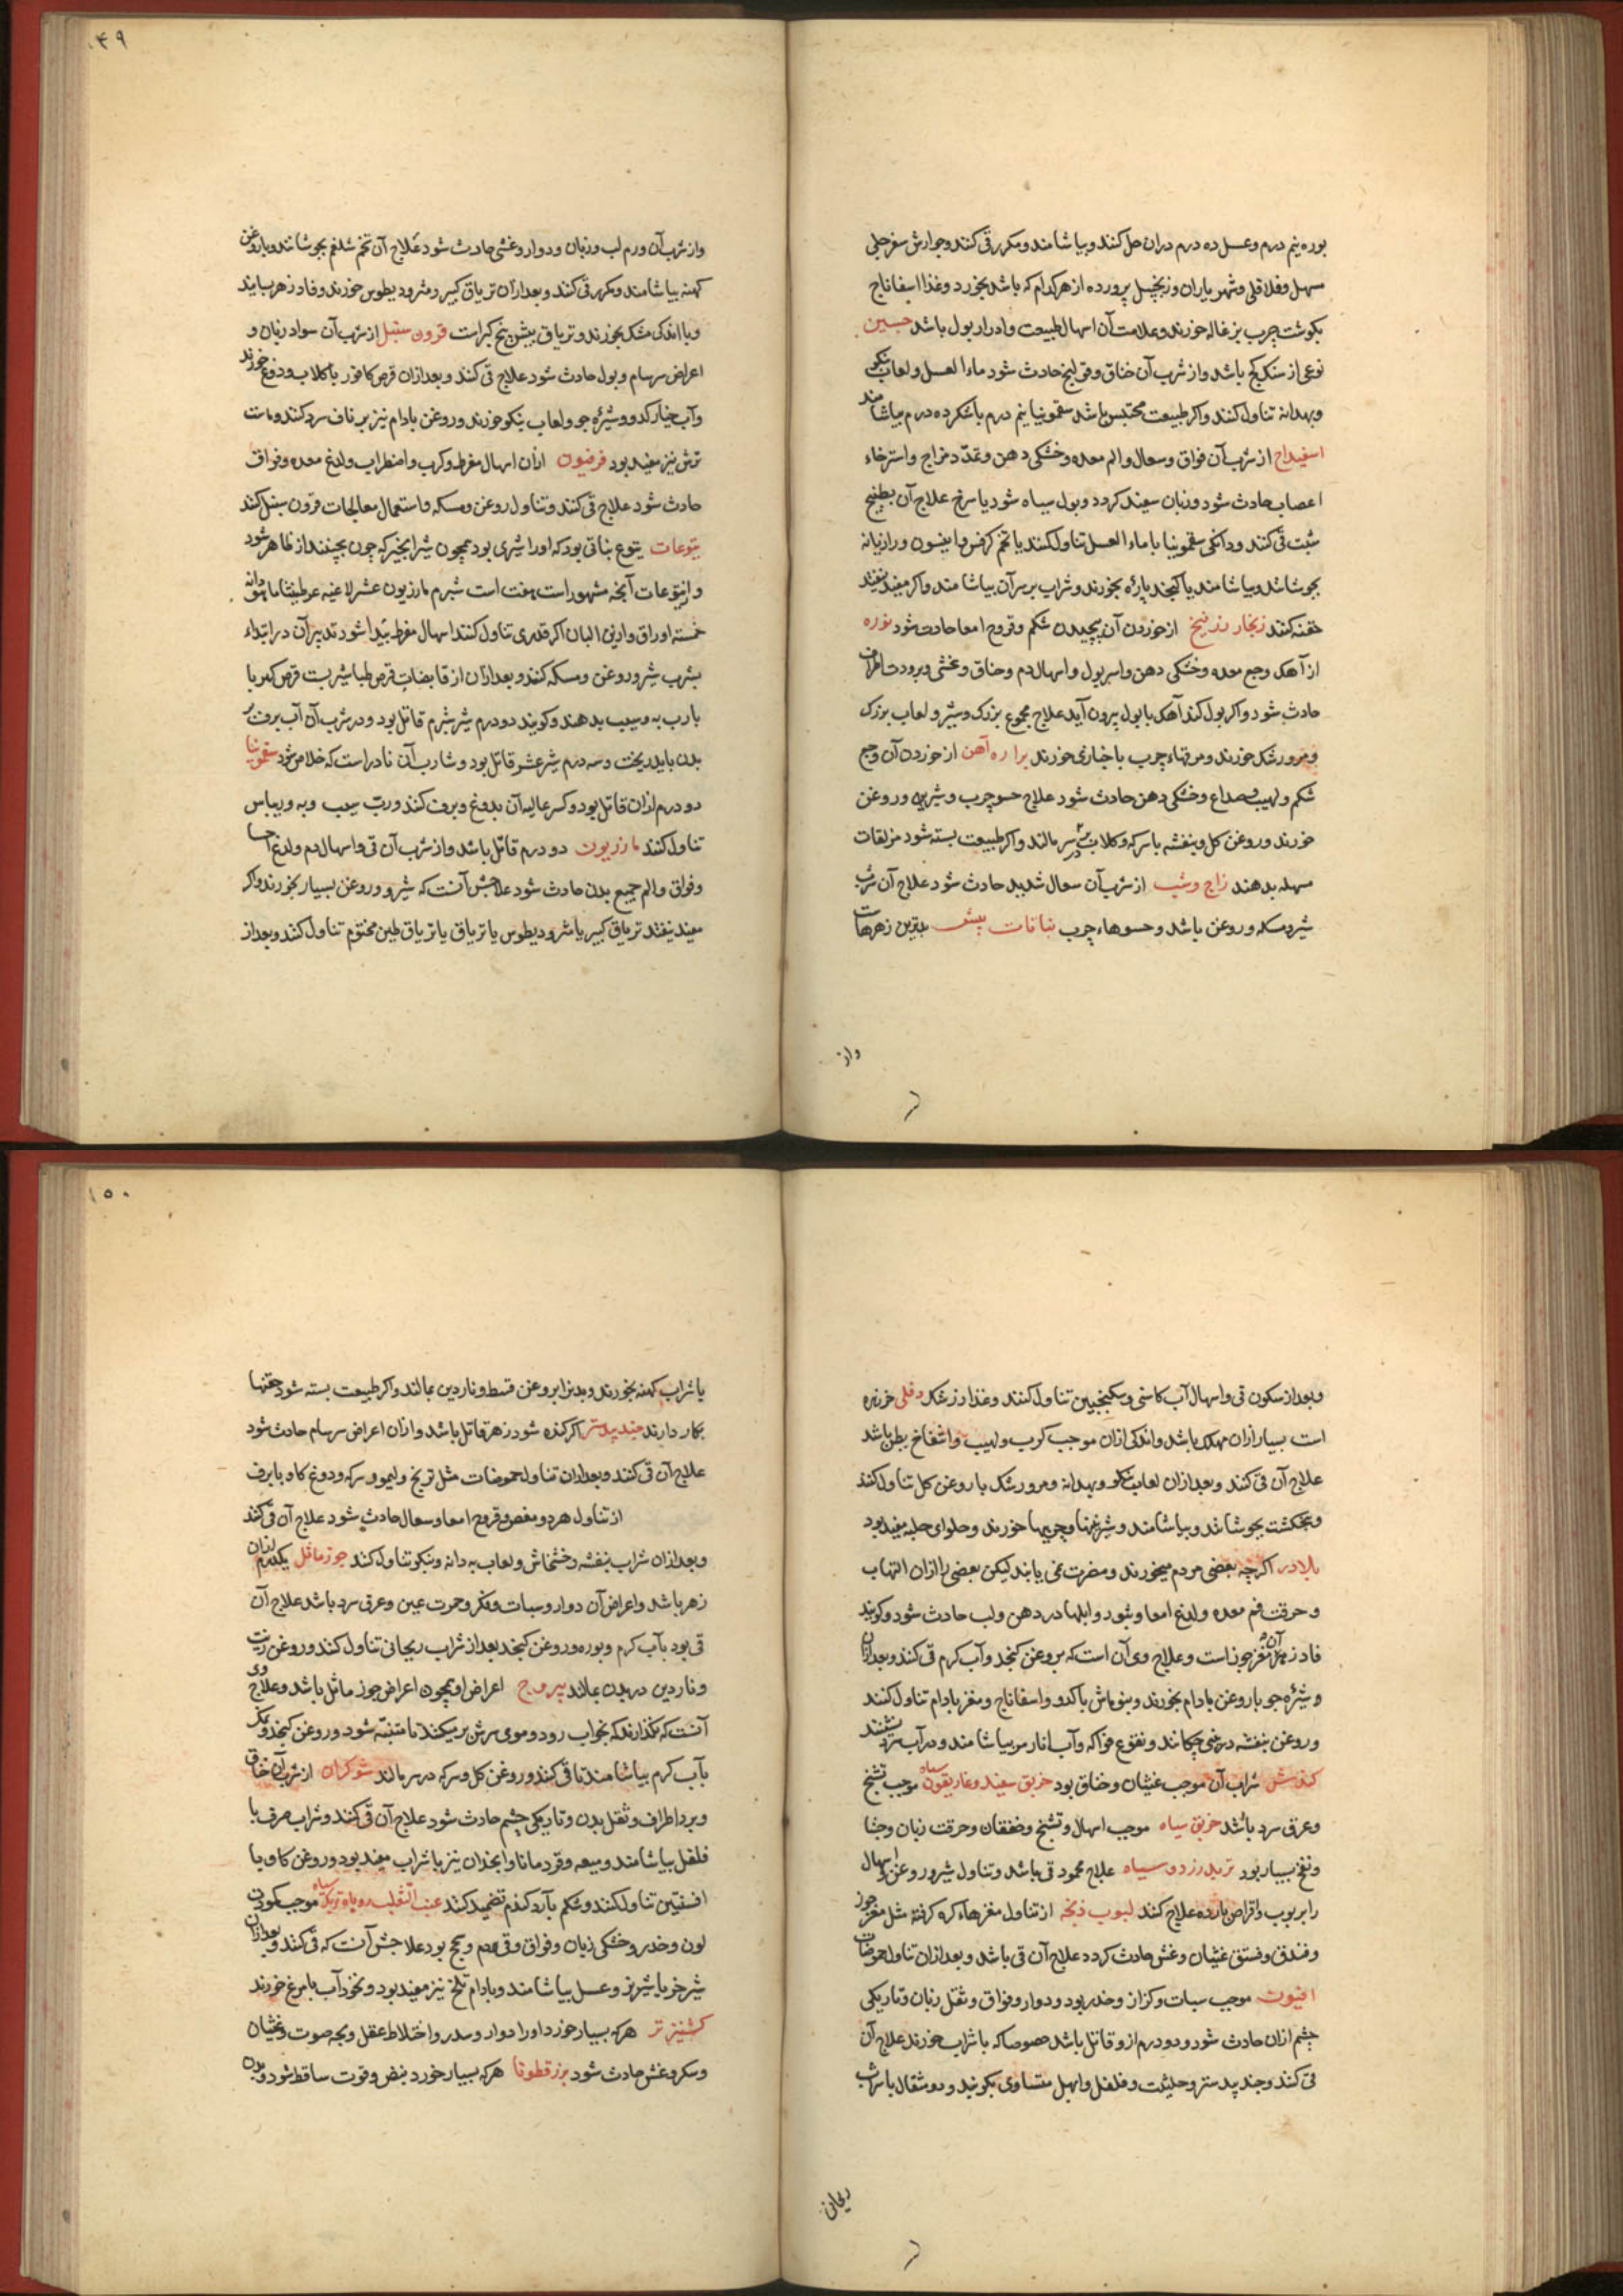 بوره نیم درم و عسل ده درم دران حل کنند و بیاشامند و مکرر قی کنند و جوارش سفرجلی
مسهل و فلافلی و شهریاران و زنجبیل پرورده از هرکدام که باشد بخورد و غذا اسفاناج
بکوشت چرب بزغاله خورند و علامت آن اسهال طبیعت و ادرار بول باشد جبسین
نوعی از سنک کج باشد و از شرب آن خناق و قولنج حادث شود ماء العسل و لعاب بنکو
و بهدانه تناول کنند و اکر طبیعت محتبس باشد سقمونیا نیم درم با شکر ده درم بیاشامند
اسفیداج از شرب آن فواق و سعال و الم معده و خشکی دهن و تمدد مزاج و استرخاء
اعصاب حادث شود و زبان سفید کردد و بول سیاه شود یا سرخ علاج آن بطبیخ
شبت قی کنند و دانکی سقمونیا با ماء العسل تناول کنند یا تخم کرفس و انیسون و رازیانه
بجوشانند و بیاشامند یا کنجد پاره بخورند و شراب بر سر آن بیاشامند و اکر مفید نیفتد
حقنه کنند زنجار زرنیخ از خوردن آن پیچیدن شکم و قروح امعا حادث شود نوره
از آهک وجع معده و خشکی دهن و اسر بول و اسهال دم و خناق و غشی و برودت اطراف
حادث شود و اکر بول کند آهک با بول بیرون آید علاج مجموع بزرک و شیر و لعاب بزرک
و مرورشک خورند و مرقهاء چرب با خبازی خورند براره آهن از خوردن آن وجع
شکم و لهیب و صداع و خشکی دهن حادث شود علاج حسو چرب و شیر و روغن
خورند و روغن کل و بنفشه با سرکه و کلاب بر سر مالند و اکر طبیعت بسته شود مزلقات
مسهله بدهند زاج و شب از شرب آن سعال شدید حادث شود علاج آن شرب
شیر و مسکه و روغن باشد و حسوهاء چرب نباتات بیش بدترین زهرهاست
واز
۱۴۹
و از شرب آن ورم لب و زبان و دوار و غشی حادث شود علاج آن تخم شلغم بجوشانند و با روغن
کهنه بیاشامند و مکرر قی کنند و بعد از آن تریاق کبیر و مثرودیطوس خورند و فادزهر بسایند
و با اندکی مشک بخورند و تریاق بیش بیخ کبر است قرون سنبل از شرب آن سواد زبان و
اعراض سرسام و بول حادث شود علاج قی کنند و بعد ازان قرص کافور با کلاب و دوغ خورند
و آب خیار کدو و شیره جو و لعاب بنکو خورند و روغن بادام نیز بر ناف سرد کنند و ماست
ترش نیز مفید بود فرفیون ازان اسهال مفرط و کرب و اضطراب و لذع معده و فواق
حادث شود علاج قی کنند و تناول روغن و مسکه و استعمال معالجات قرون سنبل کنند
یتوعات یتوع نباتی بود که اورا شیری بود همچون شیر انجیر که چون بچینند از ظاهر شود
و از یتوعات آنچه مشهور است هفت است شبرم مازریون عشر لاعیه عرطنیثا ماهودانه
خمسه اوراق و ازین البان اکر قدری تناول کنند اسهال مفرط پیدا شود تدبیر آن در ابتداء
بشرب شیر و روغن و مسکه کنند و بعد ازان از قابضات قرص طباشیر بست قرص کهربا
با رب به و سیب بدهند و کویند دو درم شیر شبرم قاتل بود و در شرب آن آب برف بر
بدن باید ریخت و سه درم شیر عشر قاتل بود و شارب آن نادر است که خلاص شود سقمونیا
دو درم ازان قاتل بود و کسر عالیه آن بدوغ و برف کنند و رب سیب و به و ریباس
تناول کنند مازریون دو درم قاتل باشد و از شرب آن قی و اسهال دم و لذع احشا
و فواق و الم جمیع بدن حادث شود علاجش آنست که شیر و روغن بسیار بخورند و اکر
مفید نیفتد تریاق کبیر یا مثرودیطوس یا تریاق یا تریاق طین مختوم تناول کنند و بعد از
و بعد از سکون قی و اسهال آب کاسنی و سکنجبین تناول کنند و غذا زرشک دفلی خرزهره
است بسیار ازان مهلک باشد و اندکی ازان موجب کرب و لهیب و انتفاخ بطن باشد
علاج آن قی کنند و بعد ازان لعاب بنکو و بهدانه و مرورشک با روغن کل تناول کنند
و بنجکشت بجوشانند و بیاشامند و شیر و غنها و چربیها خورند و حلوای حلبه مفید بود
بلادر اکرچه بعضی مردم میخورند و مضرت نمی یابند لیکن بعضی را ازان التهاب
و حرقت فم معده و لذع امعا و بثور و ابلها در دهن و لب حادث شود و کویند
فادزهر آن مغز جوز است و علاج وی آن است که بروغن کنجد و آب کرم قی کنند و بعد ازان
و شیره جو با روغن بادام بخورند و بنوماش با کدو و اسفاناج و مغز بادام تناول کنند
و روغن بنفشه در بینی چکانند و نقوع فواکه و آب انار مز بیاشامند و در آب سرد نشینند
کندش شراب آن موجب غثیان و خناق بود خربق سفید و غاریقون سیاه موجب تشنج
و عرق سرد باشد خربق سیاه موجب اسهال و تشنج و خفقان و حرقت زبان و جشا
و نفخ بسیار بود تربد زرد و سیاه علاج محمود قی باشد و تناول شیر و روغن و اسهال
را بربوب و اقراص بارده علاج کنند لبوب زنخه از تناول مغزهاء کره کرفته مثل مغز جوز
و فندق و فستق غثیان و غش حادث کردد علاج آن قی باشد و بعد ازان تناول حموضات
افیون موجب سبات و کزاز و خدر بود و دوار و فواق و ثقل زبان و تاریکی
چشم ازان حادث شود و دو درم ازو قاتل باشد خصوصا که با شراب خورند علاج آن
قی کنند و جندبیدستر و حلتیت و فلفل و ابهل متساوی بکوبند و دو مثقال با شراب
ریحان
۱۵۰
یا شراب کهنه بخورند و بدنرا بروغن قسط و ناردین بمالند و اکر طبیعت بسته شود حقنها
بکار دارند جندبیدستر اکر کنده شود زهر قاتل باشد و ازان اعراض سرسام حادث شود
علاج آن قی کنند و بعد ازان تناول حموضات مثل ترنج و لیمو و سرکه و دوغ کاو یا برف
از تناول هر دو مغص و قروح امعا و سعال حادث شود علاج آن قی کند
و بعد ازان شراب بنفشه و خشخاش و لعاب به دانه و بنکو تناول کند جوز ماثل یکدرم ازان
زهر باشد و اعراض آن دوار و سبات و فکر و حمرت عین و عرق سرد باشد علاج آن
قی بود بآب کرم و بوره و روغن کنجد بعد از شراب ریحانی تناول کند و روغن زیت
و ناردین در بدن بمالند یبروج اعراض او همچون اعراض جوز ماثل باشد و علاج وی
آنست که نکذارند که بخواب رود و موی سرش برمیکند تا متنبه شود و روغن کنجد و نمک
بآب کرم بیاشامند تا قی کنند و روغن کل و سرکه در سر مالند شوکران از شرب آن خناق
و برد اطراف و ثقل بدن و تاریکی چشم حادث شود علاج آن قی کنند و شراب صرف با
فلفل بیاشامند و میعه و قردمانا و انجدان نیز با شراب مفید بود و روغن کاو با
افسنتین تناول کنند و شکم بآرد کندم تضمید کنند عنب الثعلب سیاه موجب کمودت
لون و خدر و خشکی زبان و فواق و قی دم و سحج بود علاجش آنست که قی کنند و بعد ازان
شیر خر با شیر بز و عسل بیاشامند و بادام تلخ نیز مفید بود و نخودآب با مرغ خورند
کشنیز تر هرکه بسیار خورد اورا دوار و سدر و اختلاط عقل و بحه صوت و غثیان
و سکر و غش حادث شود بزرقطونا هرکه بسیار خورد نبض و قوت ساقط شود و بدن